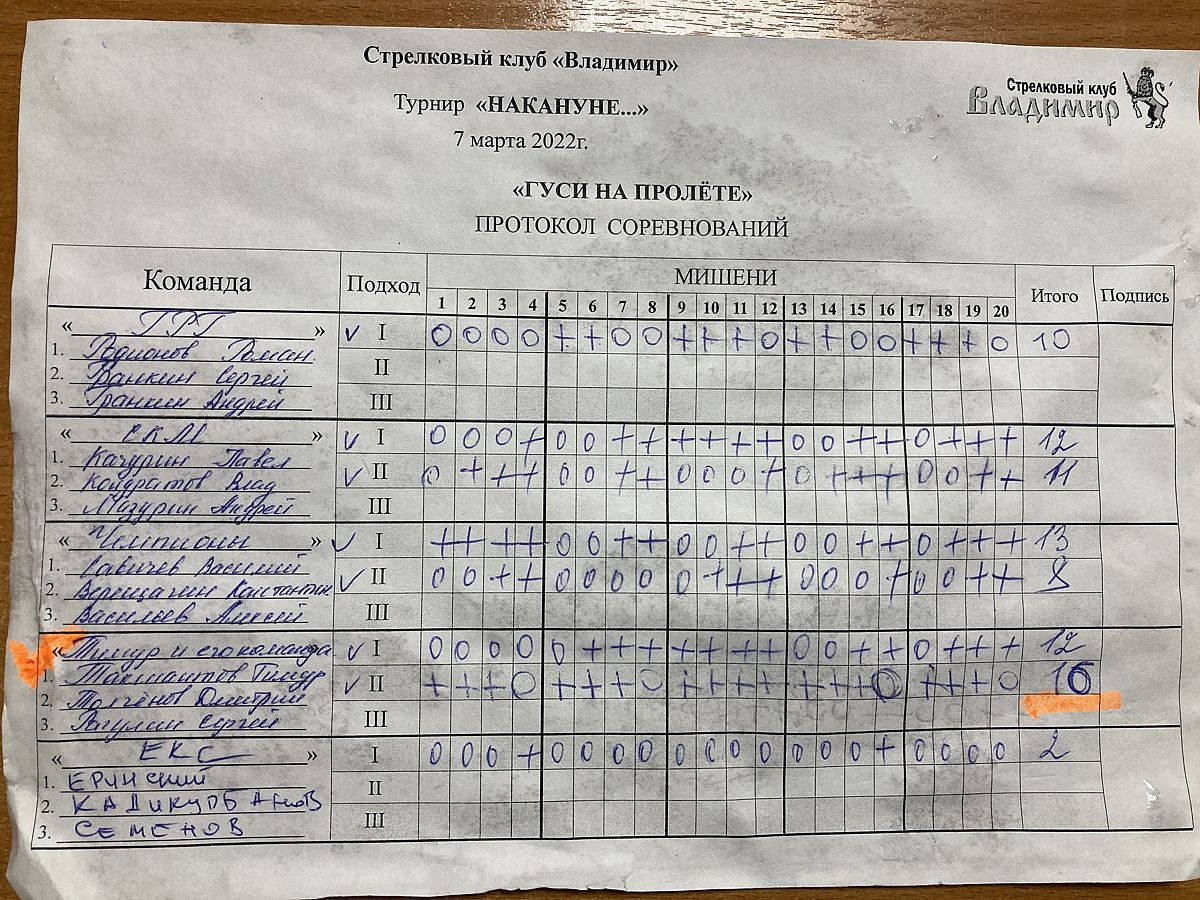 Стрелковый клуб «Владимир»
Стрелковый клуб
Владимир
Турнир «НАКАНУНЕ...»
7 марта 2022г.
«ГУСИ НА ПРОЛЁТЕ»
ПРОТОКОЛ СОРЕВНОВАНИЙ
Команда Подход МИШЕНИ Итого Подпись
1 2 3 4 5 6 7 8 9 10 11 12 13 14 15 16 17 18 19 20
« ГРГ » ✓ I 0 0 0 0 + + 0 0 + + + 0 + + 0 0 + + + 0 10
1. Родионов Роман.
2. Гранкин Сергей II
3. Гранкин Андрей III
« СКМ » ✓ I 0 0 0 + 0 0 + + + + + + 0 0 + + 0 + + + 12
1. Качурин Павел
2. Кондратов Влад ✓ II 0 + + + 0 0 + + 0 0 0 + 0 + + + 0 0 + + 11
3. Мазурин Андрей III
« Чемпионы » ✓ I + + + + 0 0 + + 0 0 + + 0 0 + + 0 + + + 13
1. Савичев Василий
2. Верещагин Константин ✓ II 0 0 + + 0 0 0 0 0 + + + 0 0 0 + 0 0 + + 8
3. Васильев Алексей III
« Тимур и его команда ✓ I 0 0 0 0 0 + + + + + + + 0 0 + + 0 + + + 12
1. Тимур
2. Дмитрий ✓ II + + + 0 + + + 0 + + + + + + + 0 + + + 0 16
3. Рагулин Сергей III
« ЕКС » I 0 0 0 + 0 0 0 0 0 0 0 0 0 0 0 + 0 0 0 0 2
1. ЕРИНСКИЙ
2. КАДИКУРБАНОВ II
3. СЕМЕНОВ III